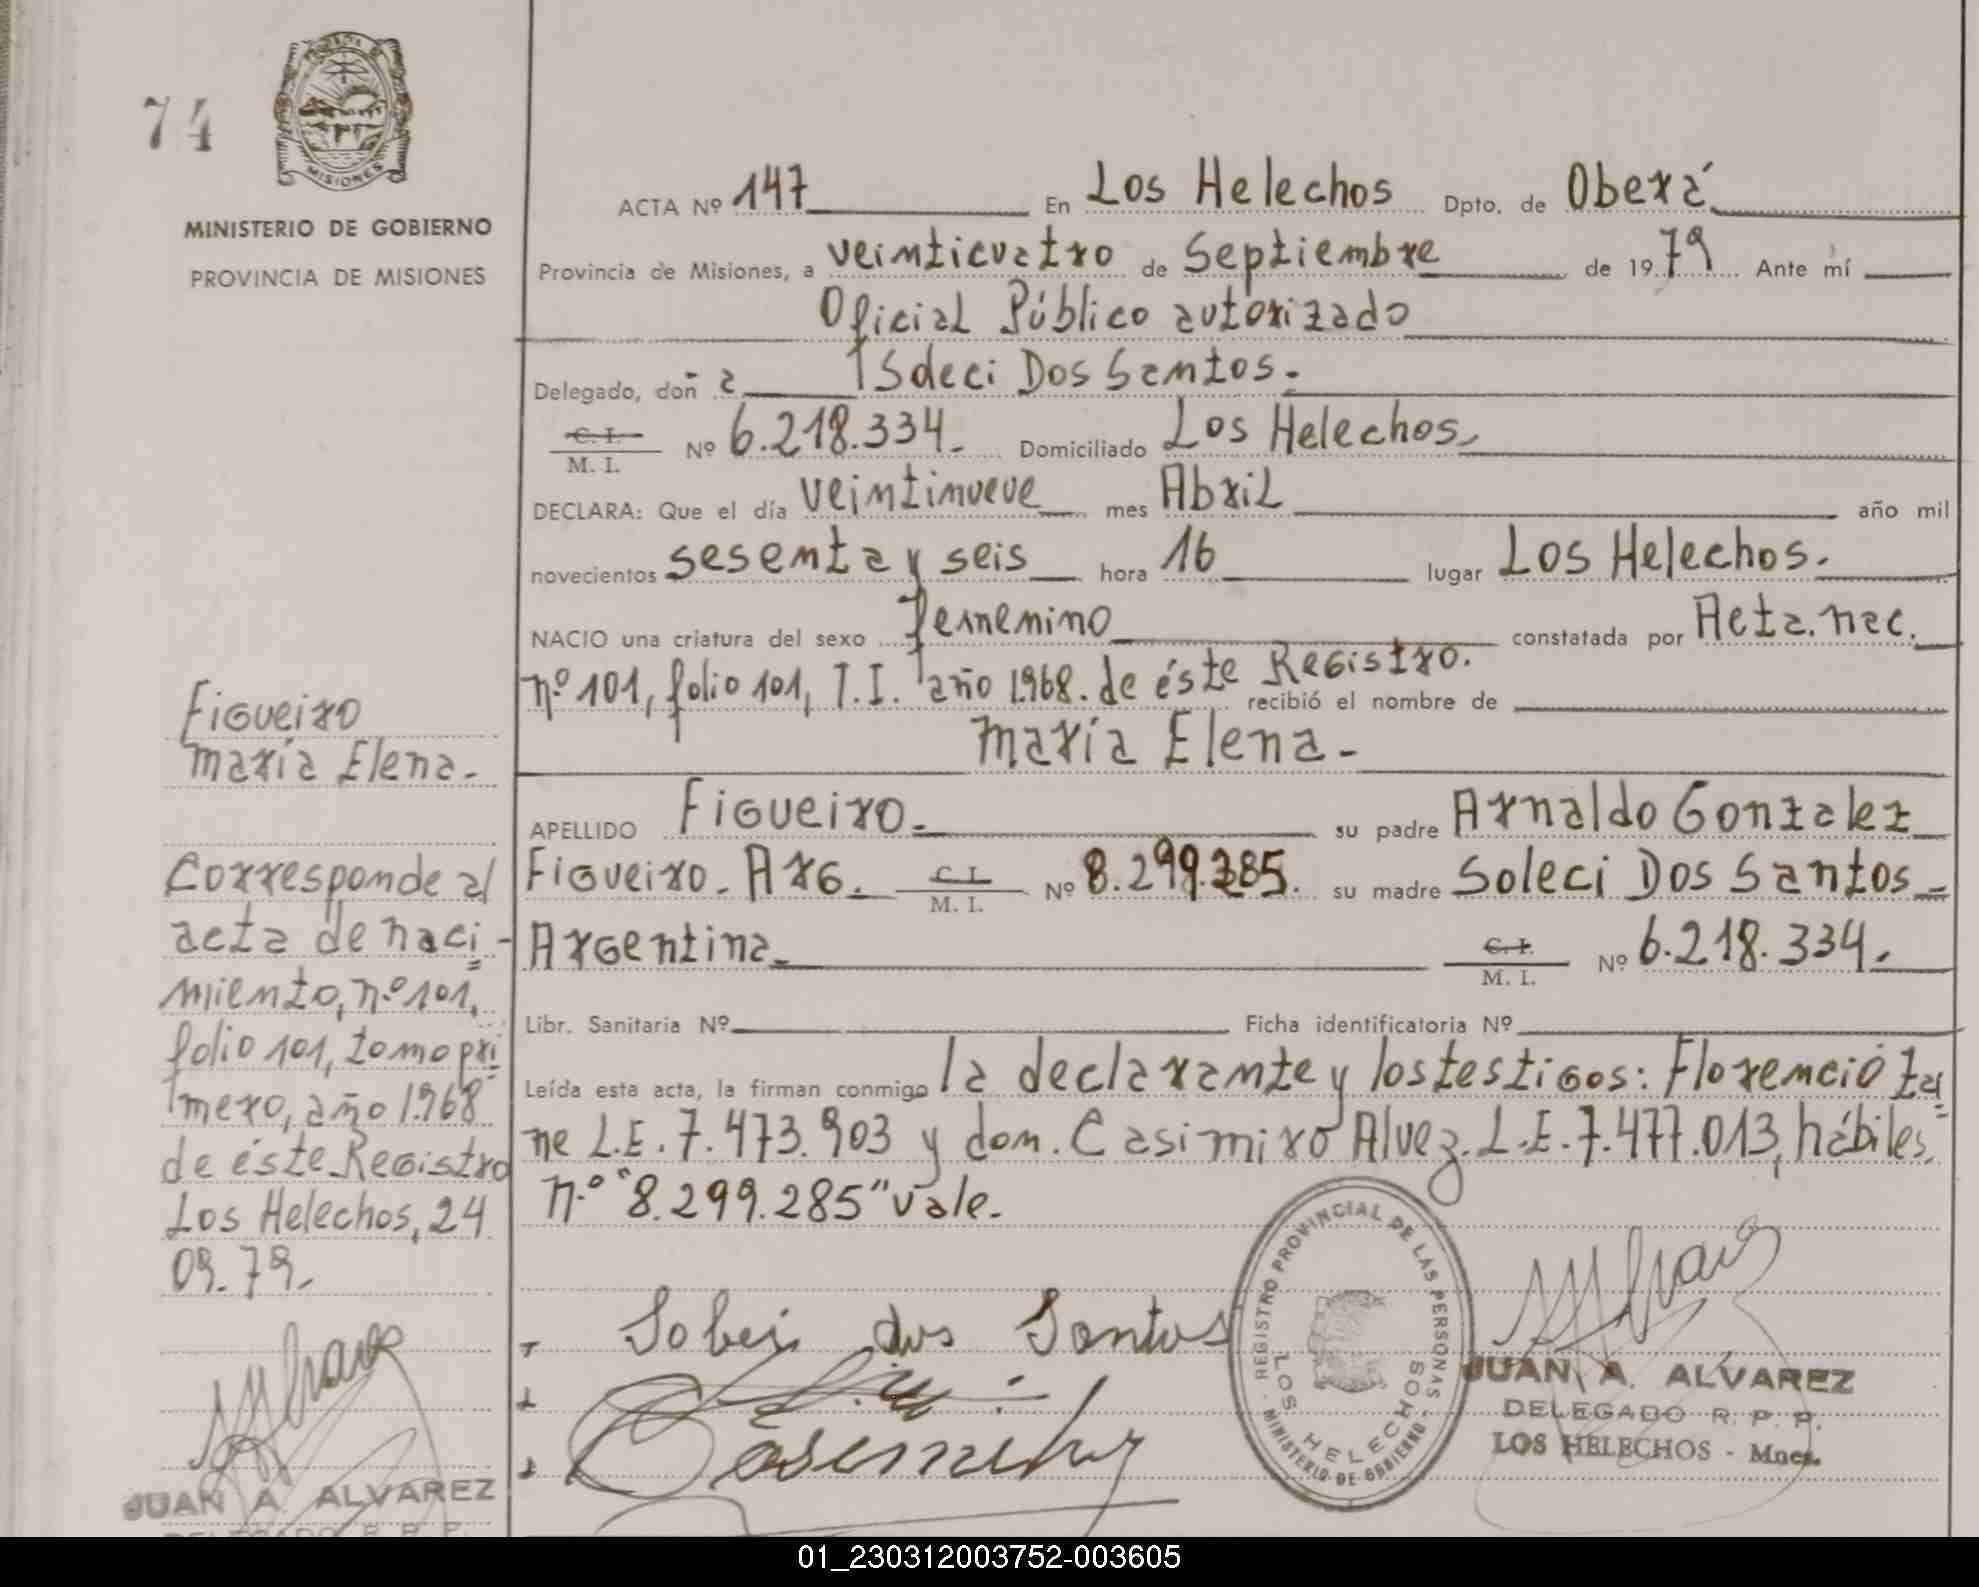 74
MISIONES
MINISTERIO DE GOBIERNO
PROVINCIA DE MISIONES
ACTA Nº 147 En Los Helechos Dpto. de Oberá
Provincia de Misiones, a veinticuatro de Septiembre de 19 79 Ante mí
Oficial Público autorizado
Delegado, doñ a Isdeci Dos Santos.
C. I. M. I. Nº 6.218.334. Domiciliado Los Helechos.
DECLARA: Que el día veintinueve mes Abril año mil
novecientos sesenta y seis hora 16 lugar Los Helechos.
NACIO una criatura del sexo femenino constatada por Acta. nac.
nº 101, folio 101, T.I. año 1.968. de éste Registro. recibió el nombre de
María Elena.
APELLIDO Figueiro. su padre Arnaldo Gonzalez
Figueiro. Arg. C. I. M. I. Nº 8.299.285. su madre Soleci Dos Santos
Argentina C. I. M. I. Nº 6.218.334.
Libr. Sanitaria Nº Ficha identificatoria Nº
Leída esta acta, la firman conmigo la declarante y los testigos: Florencio Za
ne L.E. 7.473.903 y don. Casimiro Alvez. L.E. 7.477.013, hábiles.
n.º "8.299.285" vale.
dos Santos
REGISTRO PROVINCIAL DE LAS PERSONAS
MINISTERIO DE GOBIERNO
LOS HELECHOS
JUAN A. ALVAREZ
DELEGADO R. P. P.
LOS HELECHOS - Mnes.
Figueiro
María Elena.
Corresponde al
acta de naci-
miento, n.º 101,
folio 101, tomo pri
mero, año 1.968
de éste Registro
Los Helechos, 24
09. 79.
JUAN A. ALVAREZ
DELEGADO R. P. P.
01_230312003752-003605